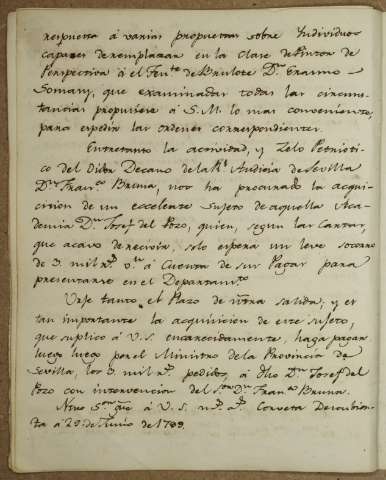 respuesta á varias propuestas sobre Individuos
capazes de remplazar en la clase de Pintor de
Perspectiva á el Ten.te de Brulote D.n Erasmo
Somaci, que examinadas todas las circuns-
tancias propusiese á S. M. lo mas conveniente,
para expedir las ordenes correspondientes.
Entretanto la actividad, y Zelo Patrioti-
co del Decano de la R.l Audicia de Sevilla
D.n Fran.co Bruna, nos ha procurado la acqui-
sicion de un excelente Sujeto de aquella Aca-
demia D.n Josef del Pozo, quien, segun las Cartas,
que acavo de recivir, solo espera un leve socorro
de 3 mil r.s v.n á Cuenta de sus Pagas para
presentarse en el Departam.to
Urge tanto el Plazo de ntra salida, y es
tan importante la acquisicion de este sujeto,
que suplico á V. S. encarecidamente, haga pagar
luego luego por el Ministro de la Provincia de
Sevilla, los 3 mil r.s pedidos, á dho D.n Josef del
Pozo con intervencion del S.or D.n Fran.co Bruna.
Ntro S.or gue á V. S. m.s a.s Corveta Descubier-
ta á 29 de Junio de 1789.